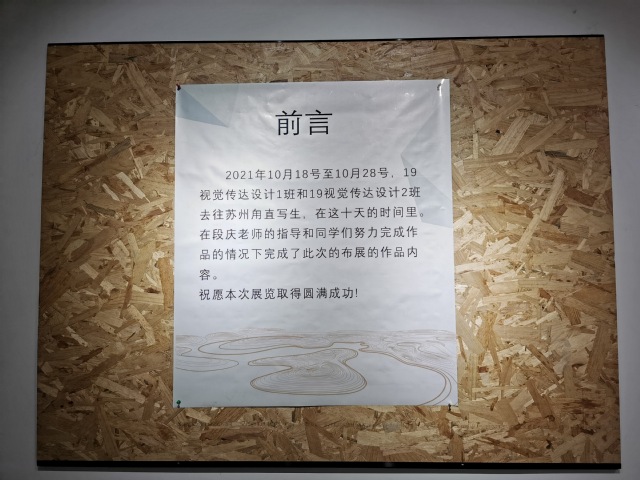 前言
2021年10月18号至10月28号，19
视觉传达设计1班和19视觉传达设计2班
去往苏州甪直写生，在这十天的时间里。
在段庆老师的指导和同学们努力完成作
品的情况下完成了此次的布展的作品内
容。
祝愿本次展览取得圆满成功!